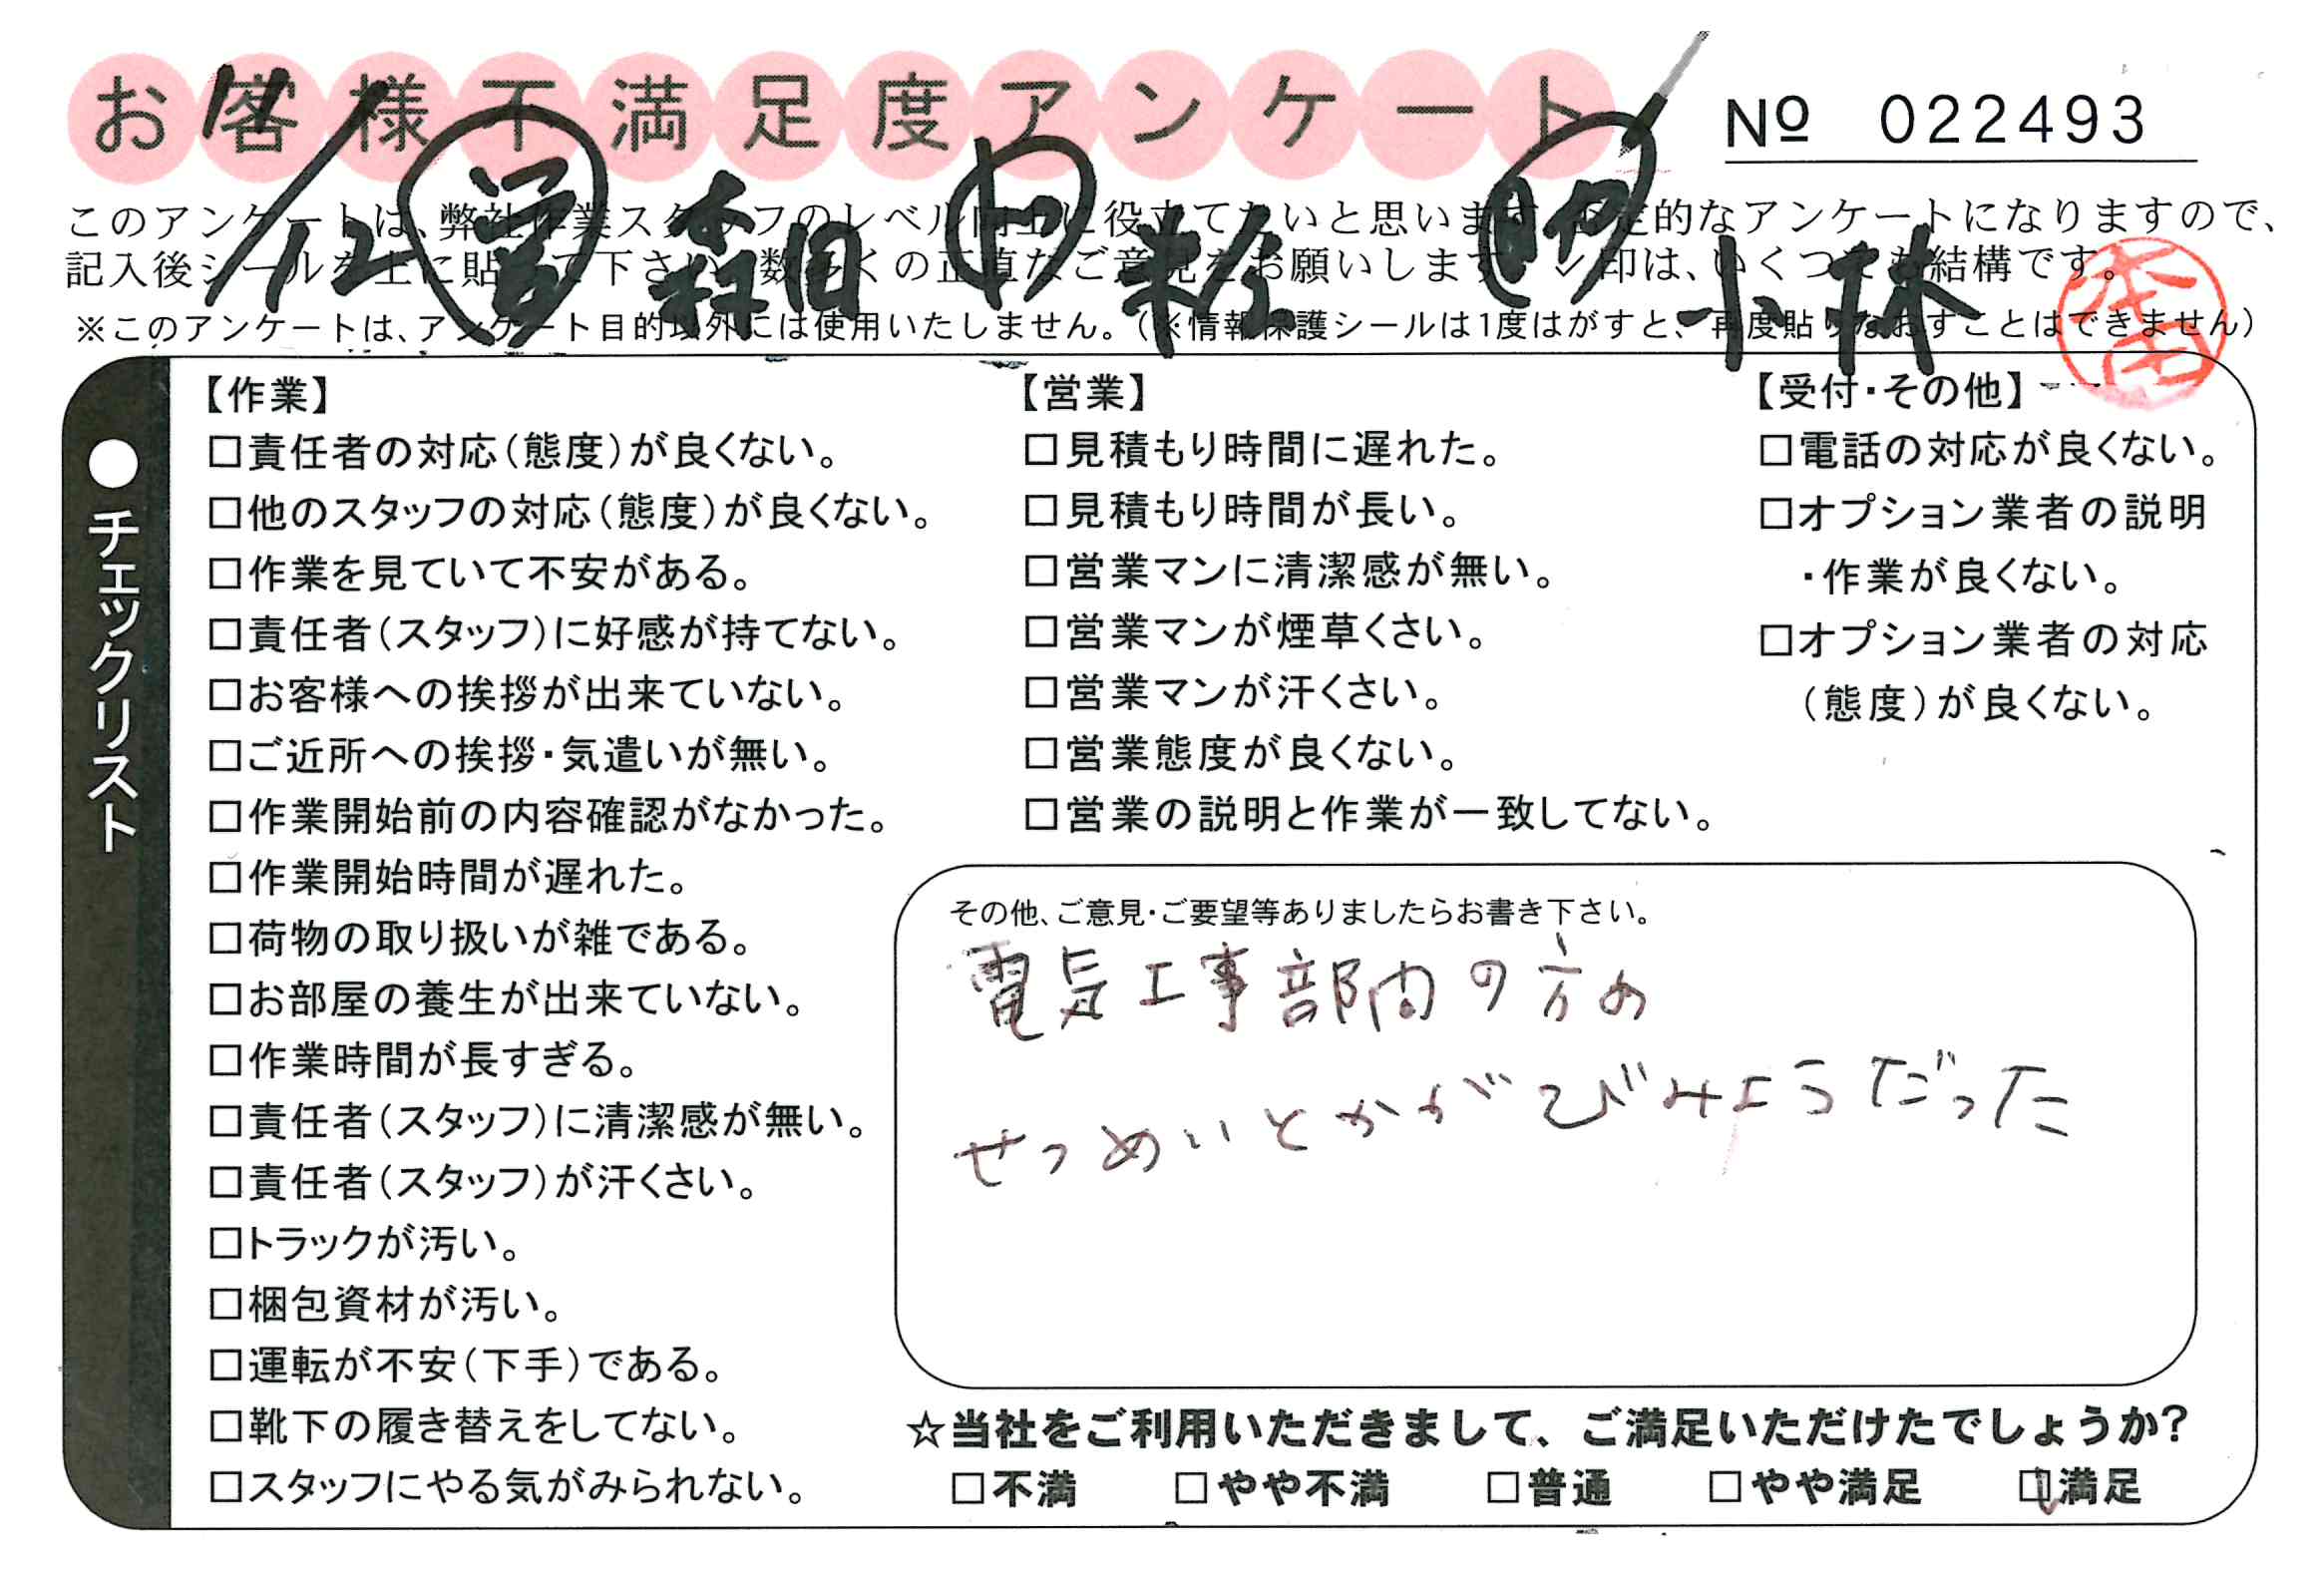 お客様不満足度アンケート
№ 022493
11/12 営 森田 小林
このアンケートは、弊社作業スタッフのレベル向上に役立てたいと思います。不定的なアンケートになりますので、
記入後シールを上に貼って下さい。数多くの正直なご意見をお願いします。レ印は、いくつでも結構です。
※このアンケートは、アンケート目的以外には使用いたしません。(※情報保護シールは1度はがすと、再度貼りなおすことはできません)
本田
●チェックリスト
【作業】
□責任者の対応(態度)が良くない。
□他のスタッフの対応(態度)が良くない。
□作業を見ていて不安がある。
□責任者(スタッフ)に好感が持てない。
□お客様への挨拶が出来ていない。
□ご近所への挨拶・気遣いが無い。
□作業開始前の内容確認がなかった。
□作業開始時間が遅れた。
□荷物の取り扱いが雑である。
□お部屋の養生が出来ていない。
□作業時間が長すぎる。
□責任者(スタッフ)に清潔感が無い。
□責任者(スタッフ)が汗くさい。
□トラックが汚い。
□梱包資材が汚い。
□運転が不安(下手)である。
□靴下の履き替えをしてない。
□スタッフにやる気がみられない。
【営業】
□見積もり時間に遅れた。
□見積もり時間が長い。
□営業マンに清潔感が無い。
□営業マンが煙草くさい。
□営業マンが汗くさい。
□営業態度が良くない。
□営業の説明と作業が一致してない。
【受付・その他】
□電話の対応が良くない。
□オプション業者の説明
・作業が良くない。
□オプション業者の対応
(態度)が良くない。
その他、ご意見・ご要望等ありましたらお書き下さい。
電気工事部門の方の
せつめいとかがびみょうだった
☆当社をご利用いただきまして、ご満足いただけたでしょうか?
□不満 □やや不満 □普通 □やや満足 ☑満足